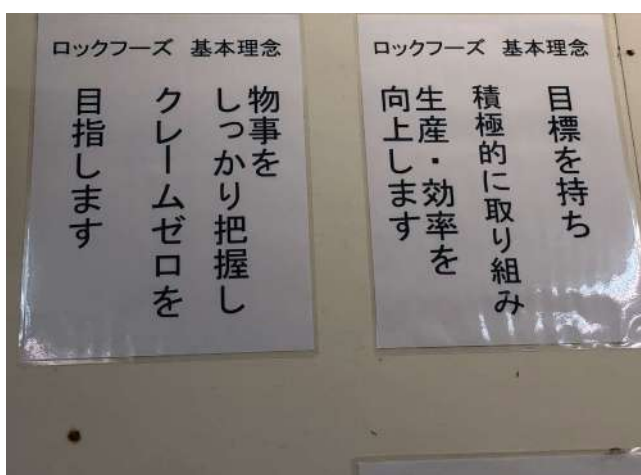 ロックフーズ 基本理念
物事を
しっかり把握し
クレームゼロを
目指します
ロックフーズ 基本理念
目標を持ち
積極的に取り組み
生産・効率を
向上します